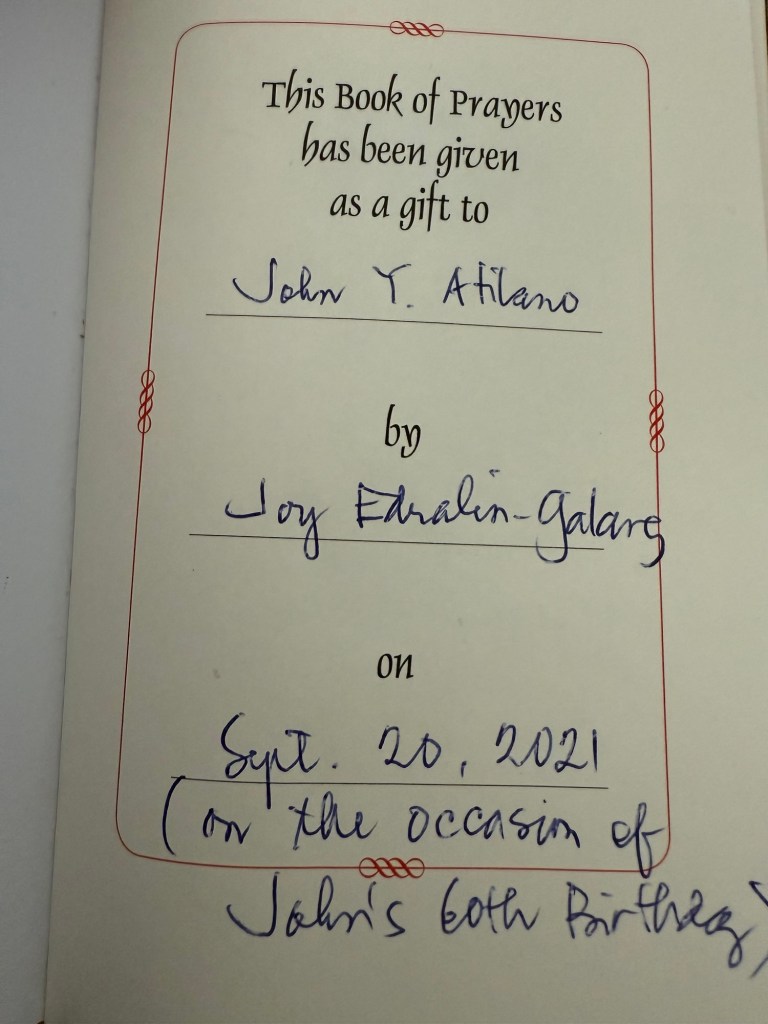 This Book of Prayers
has been given
as a gift to
John Y. Atilano
by
Joy Edralin-Galang
on
Sept. 20, 2021
(on the occasion of
John's 60th Birthday)